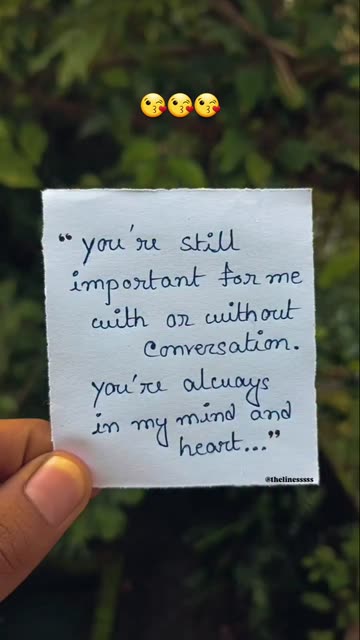 😘😘😘
“you're still
important for me
with or without
Conversation.
you're always
in my mind and
heart...”
@thelinesssss